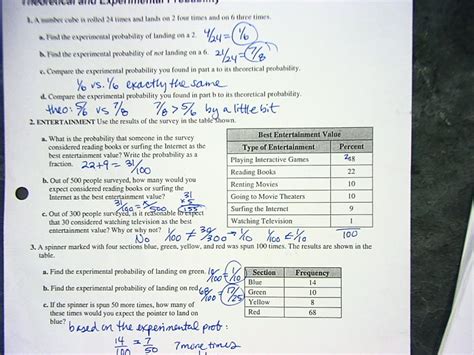 Theoretical and Experimental Probability
1. A number cube is rolled 24 times and lands on 2 four times and on 6 three times.
a. Find the experimental probability of landing on a 2. 4/24 = 1/6
b. Find the experimental probability of not landing on a 6. 21/24 = 7/8
c. Compare the experimental probability you found in part a to its theoretical probability.
1/6 vs. 1/6 exactly the same
d. Compare the experimental probability you found in part b to its theoretical probability.
theo: 5/6 vs 7/8 7/8 > 5/6 by a little bit
2. ENTERTAINMENT Use the results of the survey in the table shown.
a. What is the probability that someone in the survey
considered reading books or surfing the Internet as the
best entertainment value? Write the probability as a
fraction. 22+9 = 31/100
b. Out of 500 people surveyed, how many would you
expect considered reading books or surfing the
Internet as the best entertainment value?
31/100 = x/500
31
x 5
155
c. Out of 300 people surveyed, is it reasonable to expect
that 30 considered watching television as the best
entertainment value? Why or why not?
No 1/100 ≠ 30/300 → 1/10 1/100 ≠ 1/10
Best Entertainment Value
Type of Entertainment Percent
Playing Interactive Games 48
Reading Books 22
Renting Movies 10
Going to Movie Theaters 10
Surfing the Internet 9
Watching Television 1
100
3. A spinner marked with four sections blue, green, yellow, and red was spun 100 times. The results are shown in the
table.
a. Find the experimental probability of landing on green. 10/100 = 1/10
b. Find the experimental probability of landing on red. 68/100 = 17/25
c. If the spinner is spun 50 more times, how many of
these times would you expect the pointer to land on
blue? based on the experimental prob:
14/100 = 7/50 7 more times
Section Frequency
Blue 14
Green 10
Yellow 8
Red 68